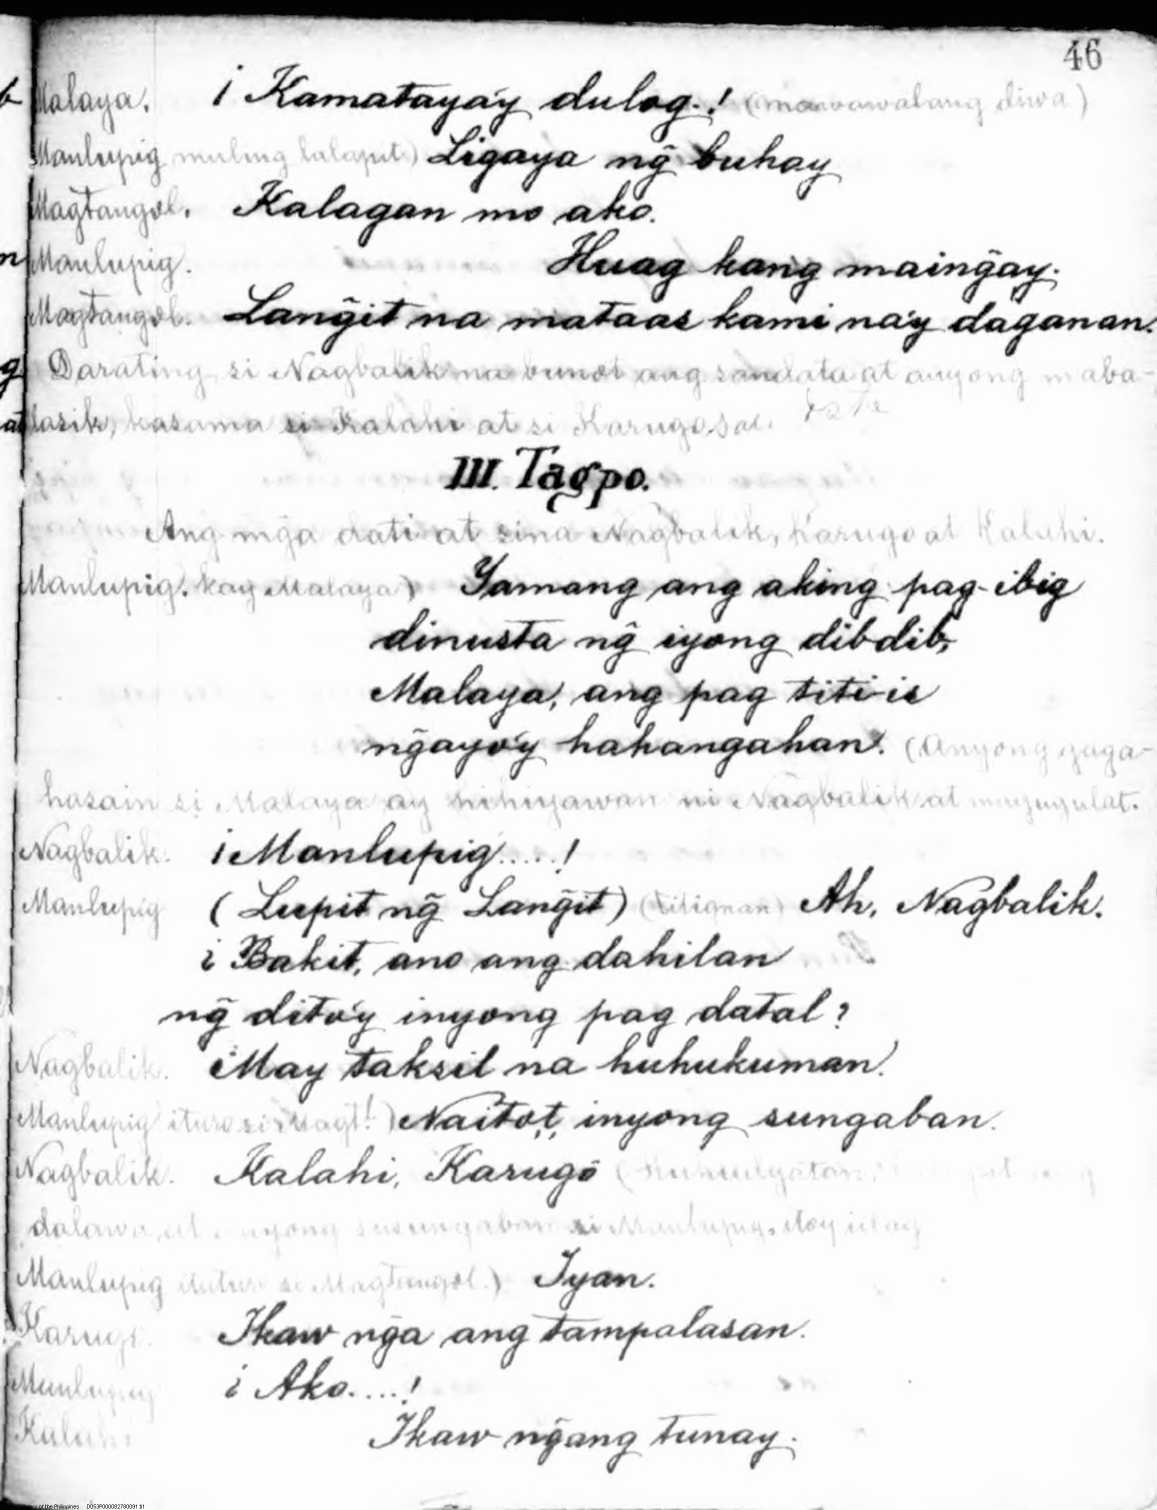 46
Malaya. ¡Kamatayáy dulog.! (mawawalang diwa)
Manlupig muling lalapit) Ligaya ng̃ buhay
Magtangol. Kalagan mo ako.
Manlupig. Huag kang maing̃ay.
Magtangol. Lang̃it na mataas kami na'y daganan.
Darating si Nagbalik na bunot ang sandata at anyong maba-
lasik, kasama si Kalahi at si Karugo
III. Tagpo.
Ang mg̃a dati at sina Nagbalik, Karugo at Kalahi.
Manlupig. kay Malaya) Yamang ang aking pag-ibig
dinusta ng̃ iyong dibdib,
Malaya, ang pag titi-is
ng̃ayo'y hahangahan. (Anyong gaga-
hasain si Malaya ay hihiyawan ni Nagbalik at magugulat.
Nagbalik. ¡Manlupig.....!
Manlupig (Lupit ng̃ Lang̃it) (titignan) Ah, Nagbalik.
¿Bakit, ano ang dahilan
ng̃ dito'y inyong pag datal?
Nagbalik. May taksil na huhukuman.
Manlupig ituro si Magt.) Naitot, inyong sungaban.
Nagbalik. Kalahi, Karugô
dalawa, at anyong susungaban si Manlupig, itoy
Manlupig ituturo si Magtangol.) Iyan.
Karugo. Ikaw ng̃a ang tampalasan.
Manlupig ¿Ako....!
Kalahi Ikaw ng̃ang tunay.